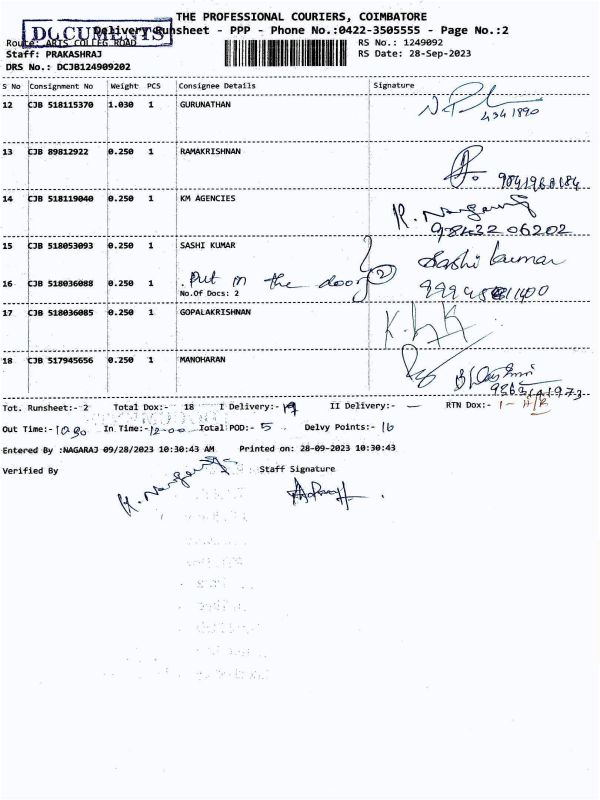 THE PROFESSIONAL COURIERS, COIMBATORE
DOCUMENTS
Delivery Runsheet - PPP - Phone No.:0422-3505555 - Page No.:2
Route: ARTS COLLEG ROAD
RS No.: 1249092
Staff: PRAKASHRAJ
RS Date: 28-Sep-2023
DRS No.: DCJB124909202
S No Consignment No Weight PCS Consignee Details Signature
12 CJB 518115370 1.030 1 GURUNATHAN
4341890
13 CJB 89812922 0.250 1 RAMAKRISHNAN
9841968184
14 CJB 518119040 0.250 1 KM AGENCIES
98432 06202
15 CJB 518053093 0.250 1 SASHI KUMAR Sashi kumar
16 CJB 518036088 0.250 1 . Put in the door 2
No.Of Docs: 2
17 CJB 518036085 0.250 1 GOPALAKRISHNAN
18 CJB 517945656 0.250 1 MANOHARAN
Tot. Runsheet:- 2 Total Dox:- 18 I Delivery:- II Delivery:- — RTN Dox:- 1 - A/R
Out Time:- 10.30 In Time:- 12-00 Total POD:- 5 Delvy Points:- 16
Entered By :NAGARAJ 09/28/2023 10:30:43 AM Printed on: 28-09-2023 10:30:43
Verified By Staff Signature